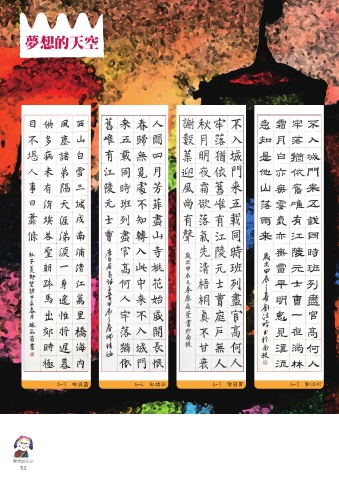 夢想的天空
不入城門來五載同時班列盡官高何人
牢落猶依舊唯有江陵元士曹一夜滿林
霜月白亦無雲氣亦無雷平明忽見溪流
急知是他山落雨來
不入城門來五載同時班列盡官高何人
牢落猶依舊唯有江陵元士曹庭戶無人
秋月明夜霜欲落氣先清梧桐真不甘衰
謝數葉迎風尚有聲
人間四月芳菲盡山寺桃花始盛開長恨
春歸無覓處不知轉入此中來不入城門
來五載同時班列盡官高何人牢落猶依
舊唯有江陵元士曹
西山白雪三城戍南浦清江萬里橋海內
風塵諸弟隔天涯涕淚一身遙惟將遲暮
供多病未有涓埃答聖朝跨馬出郊時極
目不堪人事日蕭條
52